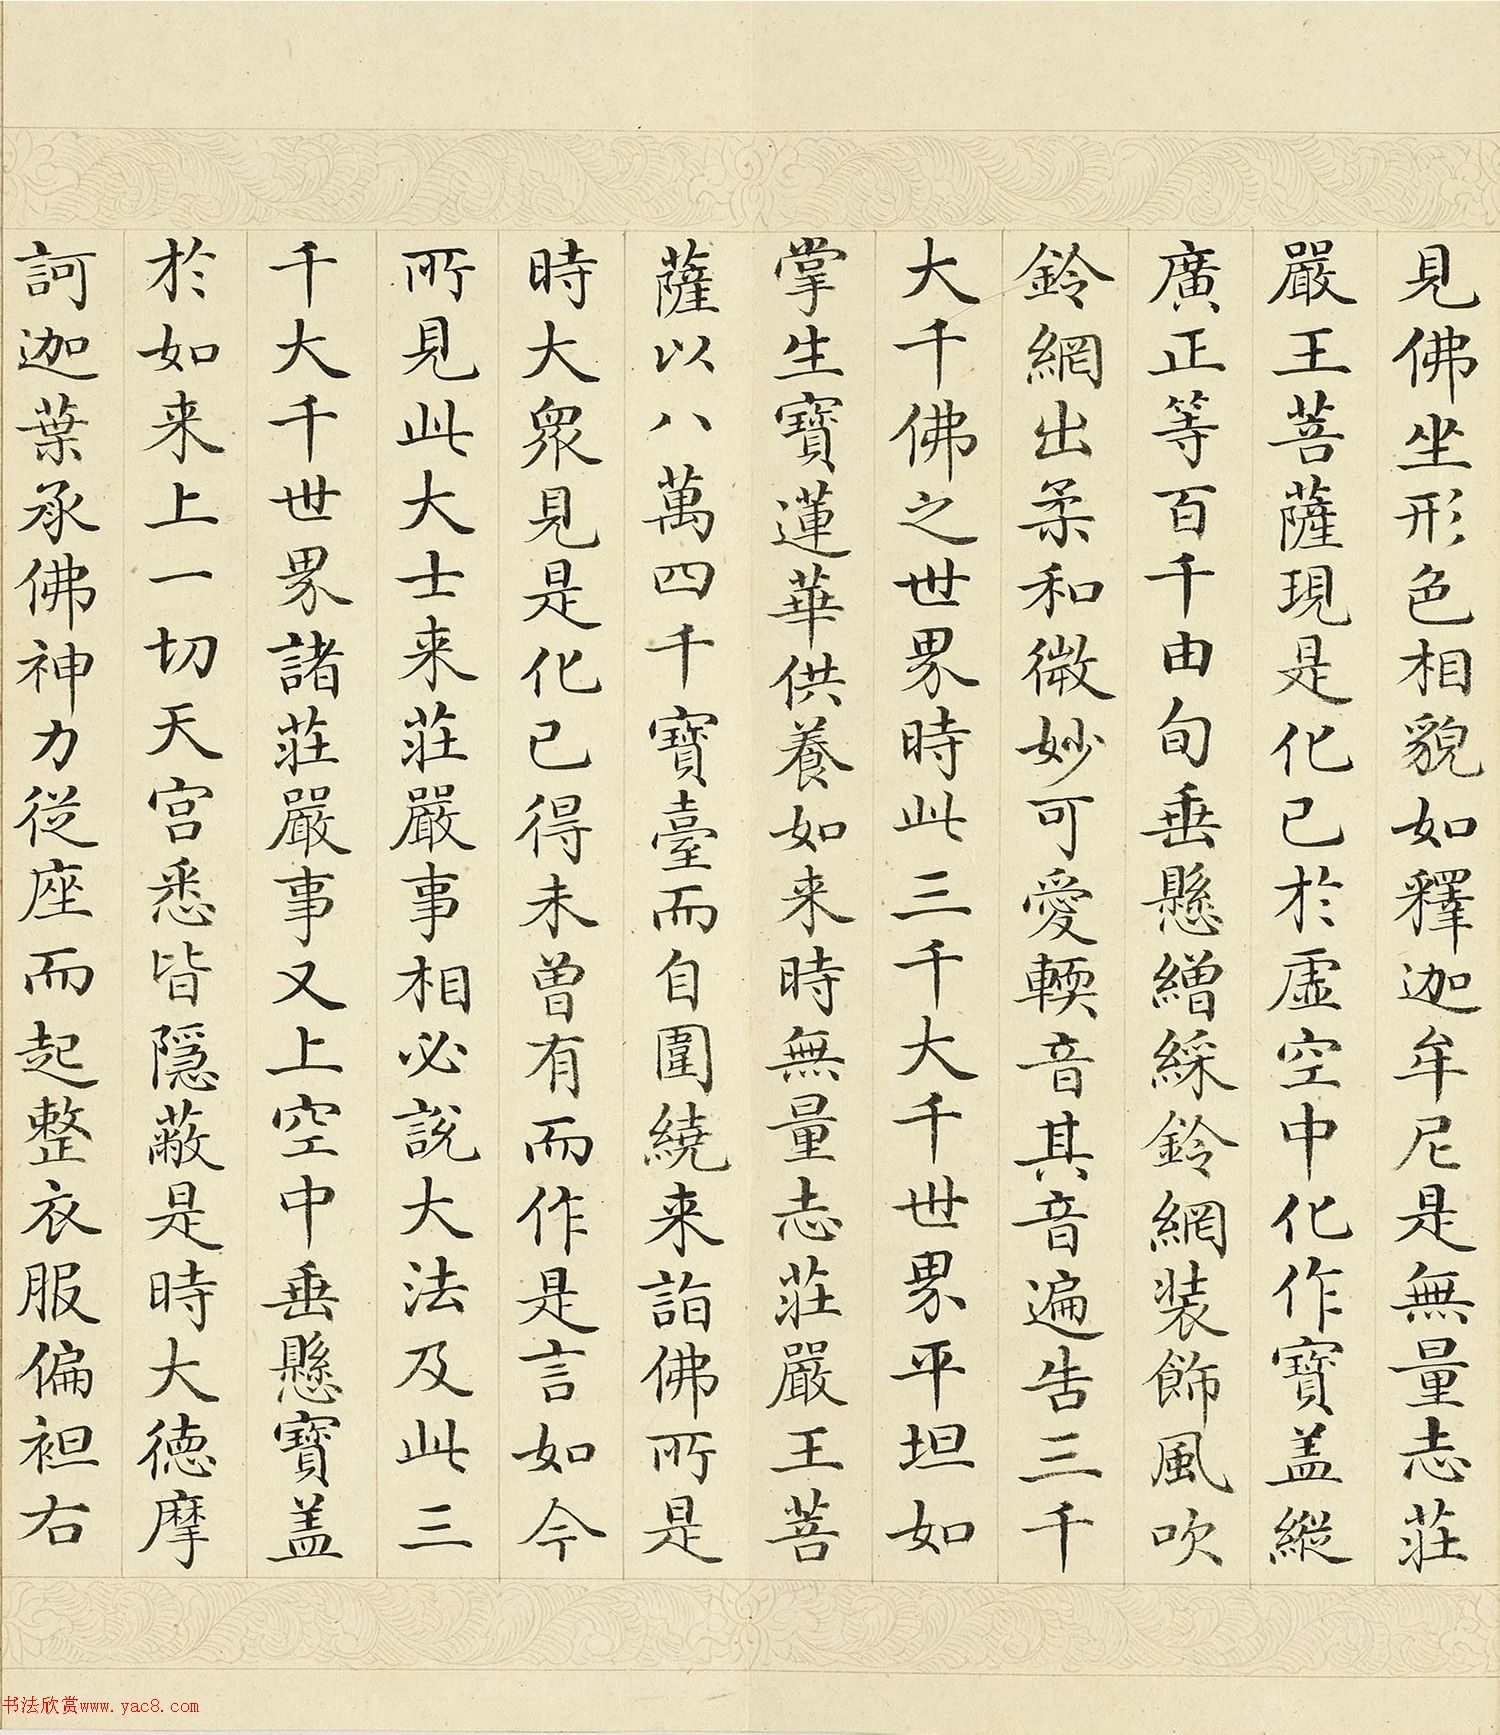 見佛坐形色相貌如釋迦牟尼是無量志莊
嚴王菩薩現是化已於虛空中化作寶盖縱
廣正等百千由旬垂懸繒綵鈴網装飾風吹
鈴網出柔和微妙可愛輭音其音遍告三千
大千佛之世界時此三千大千世界平坦如
掌生寶蓮華供養如来時無量志莊嚴王菩
薩以八萬四千寶臺而自圍繞来詣佛所是
時大眾見是化已得未曾有而作是言如今
所見此大士来莊嚴事相必說大法及此三
千大千世界諸莊嚴事又上空中垂懸寶盖
於如来上一切天宫悉皆隱蔽是時大德摩
訶迦葉承佛神力從座而起整衣服偏袒右
书法欣赏www.yac8.com